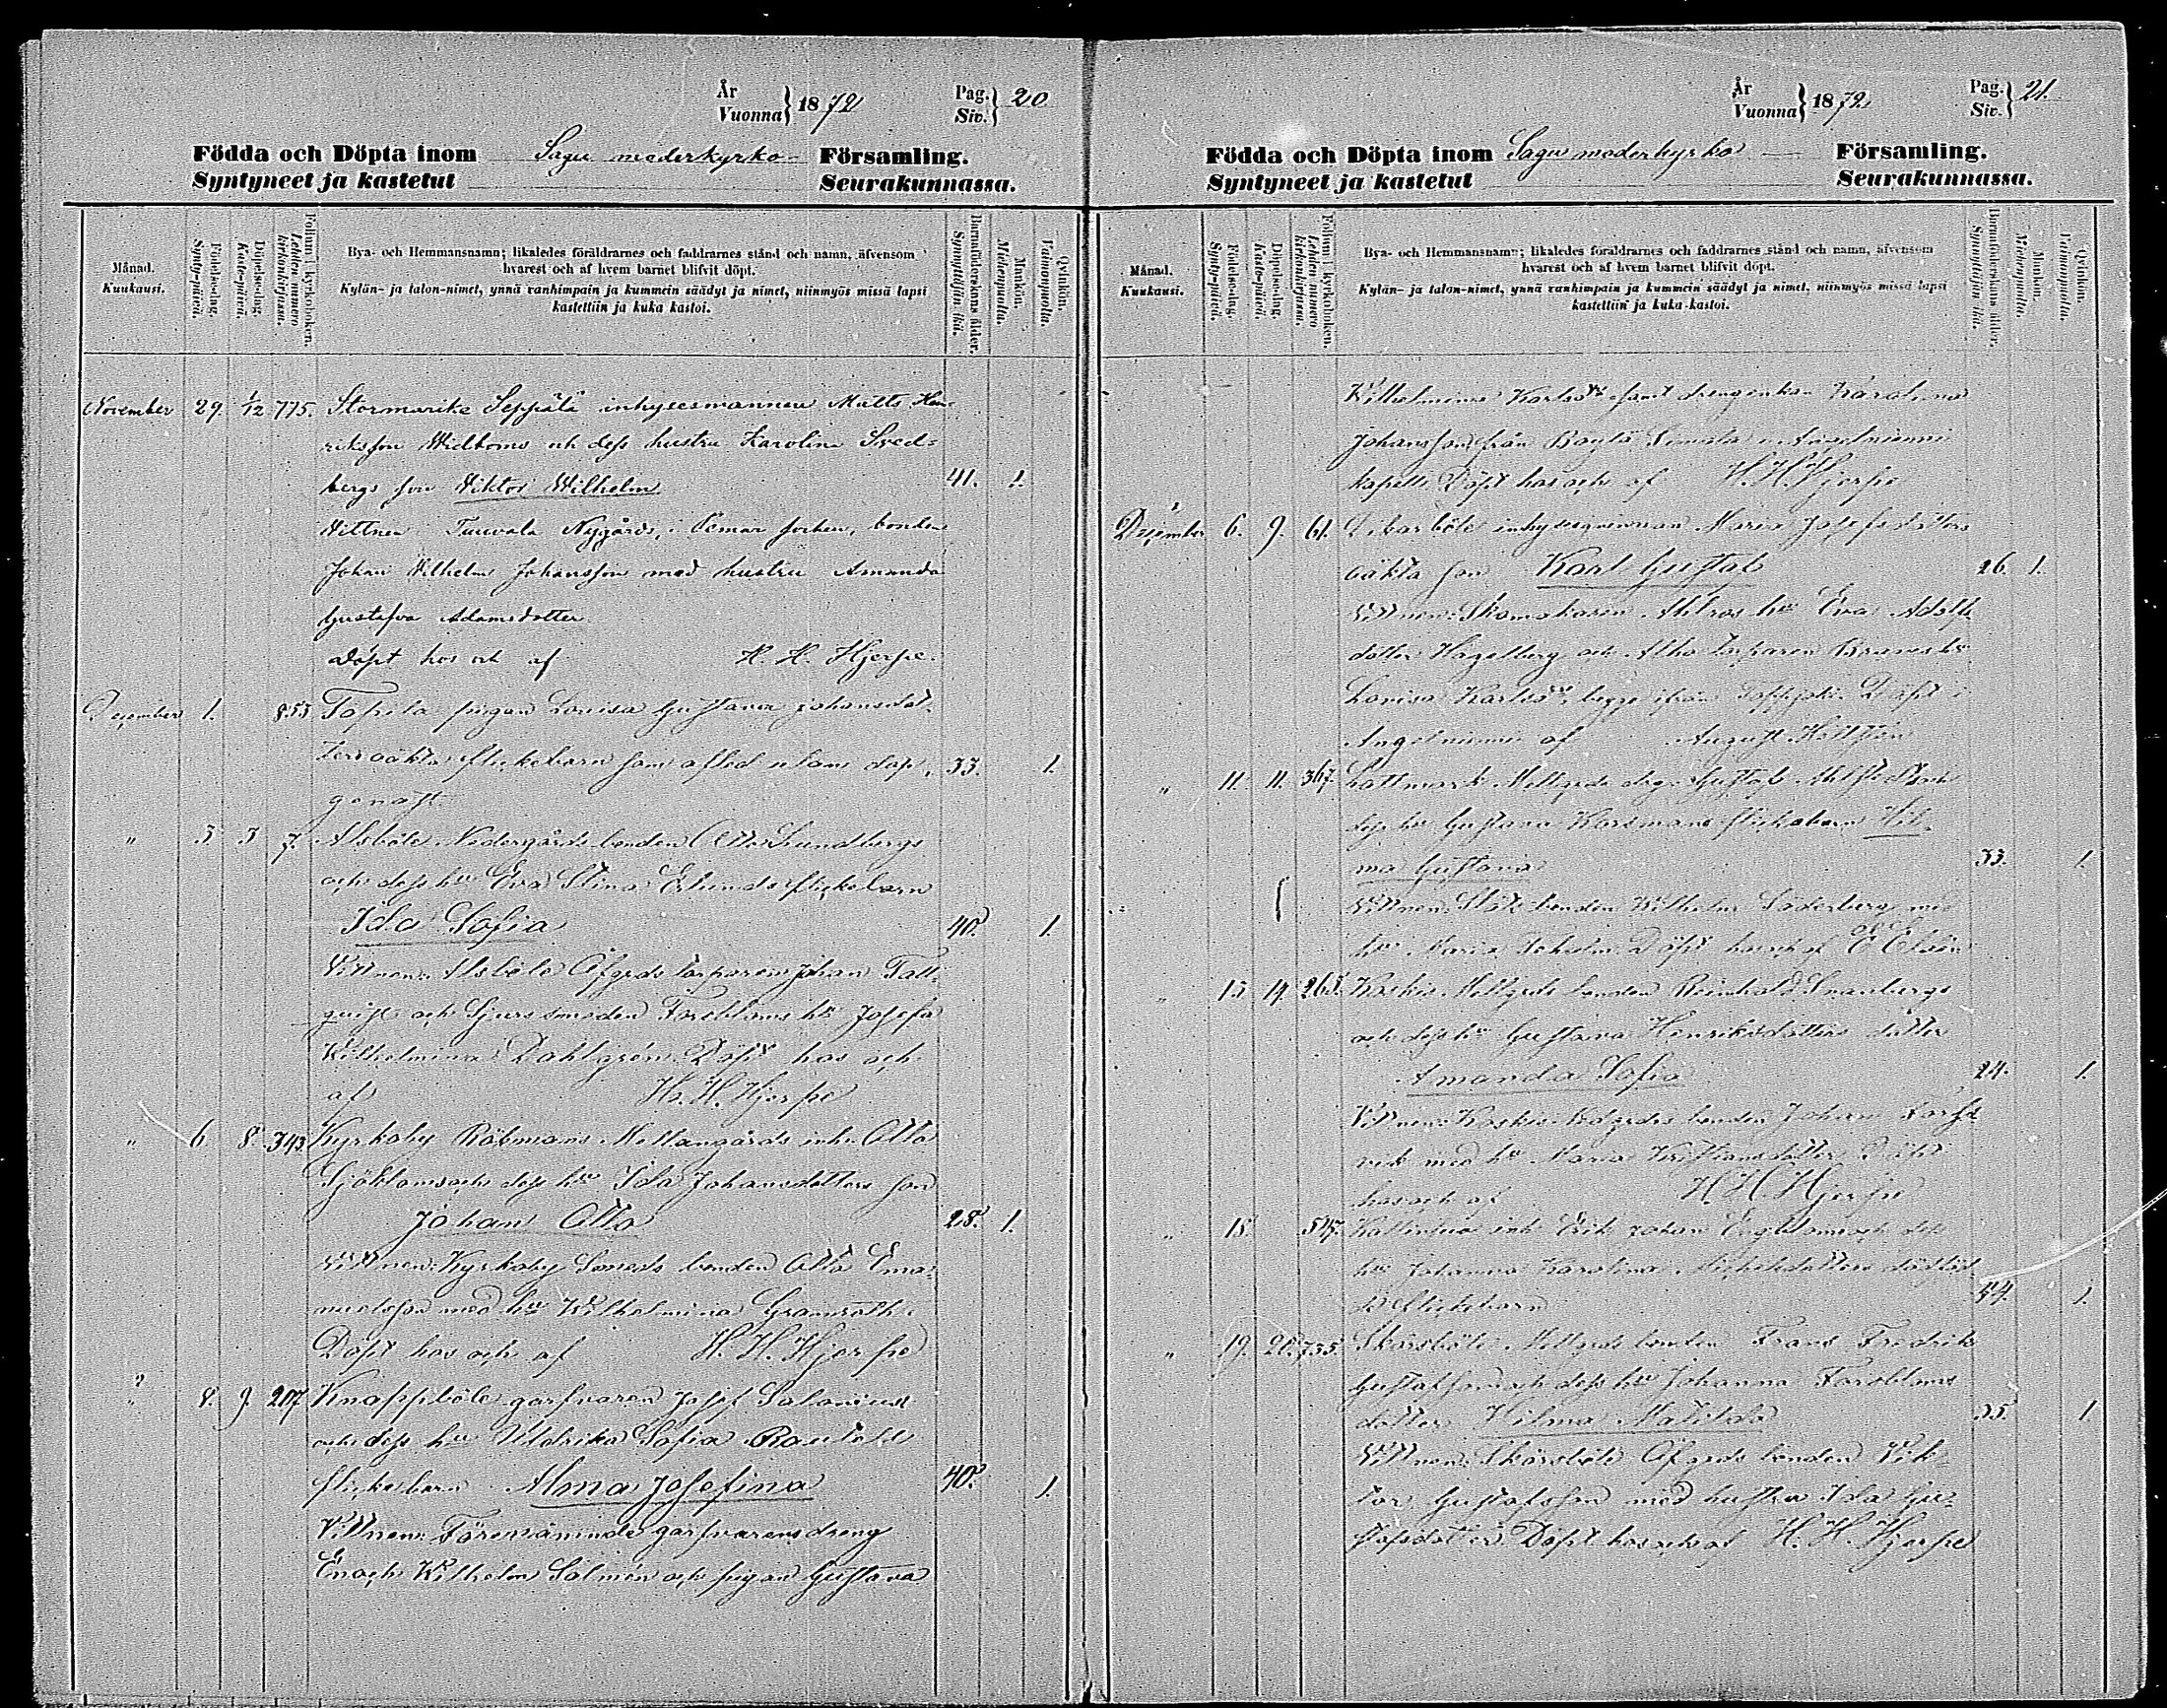 År
Vuonna } 1872
Pag.
Siv. } 20
Födda och Döpta inom Sagu moderkyrko- Församling.
Syntyneet ja kastetut Seurakunnassa.
Månad.
Kuukausi.
Födelse-dag.
Synty-päivä.
Döpelse-dag.
Kaste-päivä.
Folium i kyrkoboken.
Lehden numero kirkonkirjassa.
Bya- och Hemmansnamn; likaledes föräldrarnes och faddrarnes stånd och namn, äfvensom
hvarest och af hvem barnet blifvit döpt.
Kylän- ja talon-nimet, ynnä vanhimpain ja kummein säädyt ja nimet, niinmyös missä lapsi
kastettiin ja kuka kastoi.
Barnaföderskans ålder.
Synnyttäjän ikä.
Mankön.
Miehenpuolta.
Qvinkön.
Vaimonpuolta.
November 29. 1/12 775. Stormarike Seppälä inhysesmannen Matts Hen-
riksson Widboms och dess hustru Karolina Sved-
bergs son Wiktor Wilhelm 41. 1.
Wittnen Tuuvala Nygårds, i Pemar socken, bonden
Johan Wilhelm Johansson med hustru Amanda
Gustafva Adamsdotter
Döpt hos och af H. H. Hjerpe.
December 1. 855 Topila pigan Lovisa Gustava Johansdot-
ters oäkta flickebarn som afled utan dop, 33. 1.
genast
" 3 3 7. Alsböle Nedergårds bonden Otto Lundbergs
och dess hu Eva Stina Erlunds flickebarn
Ida Sofia 40. 1.
Vittnen: Alsböle Öfgrds torparen Johan Tall-
quist och Sjurs smeden Forsbloms hu Josefa
Wilhelmina Dahlgrén. Döpt hos och
af H. H. Hjerpe
" 6 8. 343 Kyrkoby Röbmans Mellangårds inh. Otto
Sjöbloms och dess hu Ida Johansdotters son
Johan Otto 28. 1.
Vittnen: Kyrkoby Smeds bonden Otto Ema-
nuelsson med hu Wilhelmina Granroth
Döpt hos och af H. H. Hjerpe
" 8. 9. 207 Knappböle garfvaren Josef Salonius
och dess hu Uldrika Sofia
flickebarn Alma Josefina 40. 1.
Vittnen: Förenämnde garfvarens dreng
Enoch Wilhelm Salmén och pigan Gustava
År
Vuonna } 1872
Pag.
Siv. } 21.
Födda och Döpta inom Sagu moderkyrko Församling.
Syntyneet ja kastetut Seurakunnassa.
Månad.
Kuukausi.
Födelse-dag.
Synty-päivä.
Döpelse-dag.
Kaste-päivä.
Folium i kyrkoboken.
Lehden numero kirkonkirjassa.
Bya- och Hemmansnamn; likaledes föräldrarnes och faddrarnes stånd och namn, äfvensom
hvarest och af hvem barnet blifvit döpt.
Kylän- ja talon-nimet, ynnä vanhimpain ja kummein säädyt ja nimet, niinmyös missä lapsi
kastettiin ja kuka kastoi.
Barnaföderskans ålder.
Synnyttäjän ikä.
Mankön.
Miehenpuolta.
Qvinkön.
Vaimonpuolta.
Wilhelmina Karlsdr samt drengenkan Karolina
Johansson från i Angelniemi
kapell. Döpt hos och af H. H. Hjerpe
December 6. 9. 61. inhysesqvinnan Maria Josefsdotters
oäkta son Karl Gustaf 26. 1.
Vittnen: Skomakaren Ahlros hu Eva Adolfs-
dotter Hagelberg och torparen hu
Lovisa Karlsdr, begge ifrån Döpt i
Angelniemi af August Hellstén
" 11. 11. 367. Mellgrds Gustaf
dess hu Gustava flickebarn Hil-
ma Gustava 33. 1.
Vittnen: bonden Wilhelm Söderberg med
hu Maria Döpt hos och af E
" 15 19. 265. Koskis Mellgrds bonden Reinhold
och dess hu Gustava Henriksdotters dotter
Amanda Sofia 24. 1.
Vittnen: Koskis bonden Johan
med hu Maria Kristiansdotter Döpt
hos och af H. H. Hjerpe
" 18. 547. inh. Erik Johan Engbloms och dess
hu Johanna Karolina Michelsdotters dödfödt
flickebarn 44. 1.
" 19. 20. 735. Skärsböle Mellgrds bonden Frans Fredrik
Gustafsson och dess hu Johanna Forsbloms
dotter Hilma Matilda 35. 1.
Vittnen: Skärsböle Öfgrds bonden Vik-
tor Gustafsson med hustru Ida Gu-
stafsdotter Döpt hos och af H. H. Hjerpe